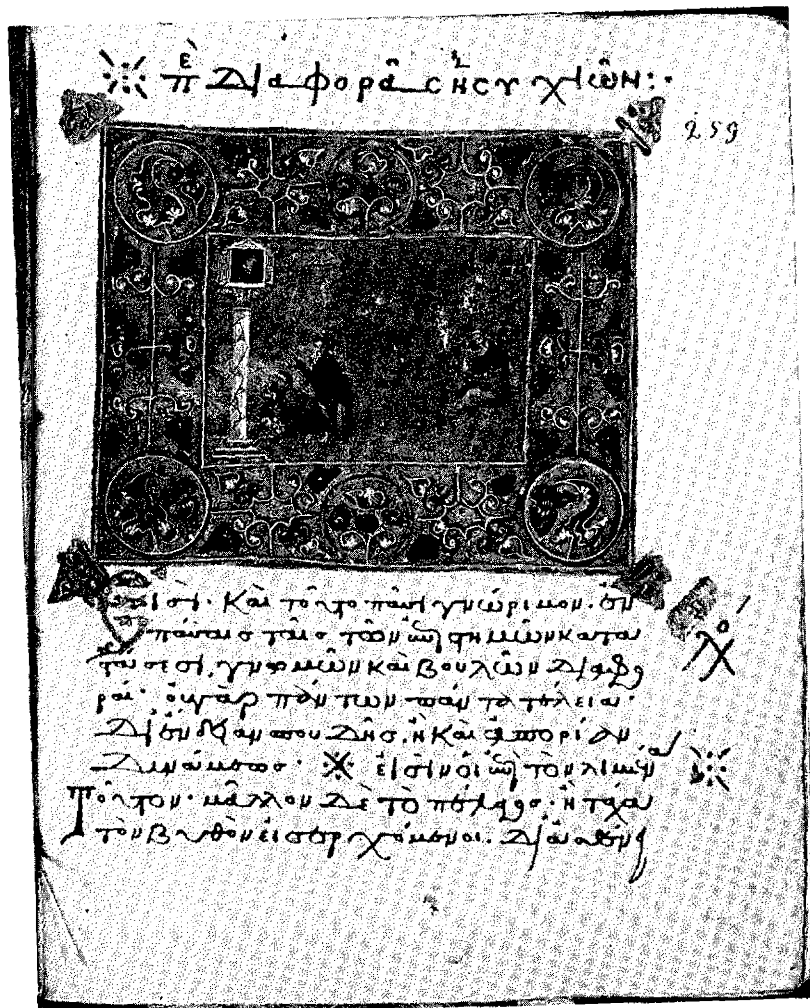 ※ πὲ διαφορᾶς ἡσυχιῶν:·
259
ἰσὶ· καὶ τοῦτο παντὶ γνώριμον· ἐν
πάσαις ταῖς τῶν ἐπιστημῶν κατα
στάσεσι, γνωμῶν καὶ βουλῶν διαφο
ραί· οὐ γὰρ πάντων πάντα τέλεια·
δι' ἔνδειαν σπουδῆς, ἢ καὶ ἀπορίαν
δυνάμεως· ※ εἰσὶν οἱ ἐπὶ τὸν λιμένα
τοῦτον· μᾶλλον δὲ τὸ πέλαγος· ἢ τάχα
τὸν βυθὸν εἰσερχόμενοι·